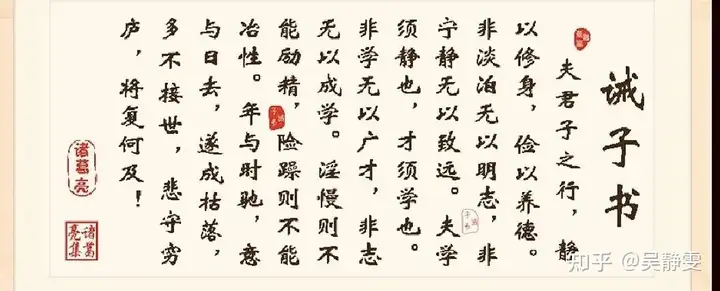 诫子书
夫君子之行，静
以修身，俭以养德。
非淡泊无以明志，非
宁静无以致远。夫学
须静也，才须学也。
非学无以广才，非志
无以成学。淫慢则不
能励精，险躁则不能
冶性。年与时驰，意
与日去，遂成枯落，
多不接世，悲守穷
庐，将复何及！
诸葛亮
诸葛
亮集
知乎 @吴静雯